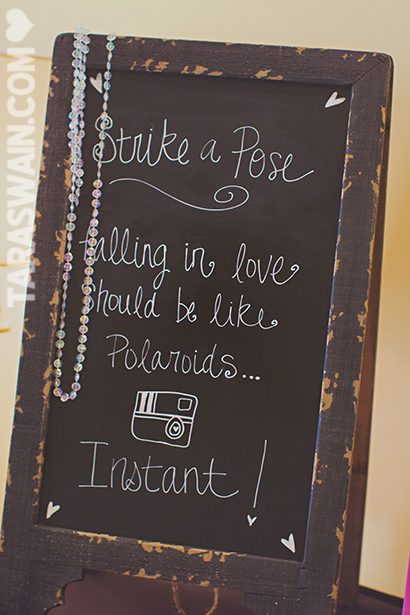 TARASWAIN.COM
Strike a Pose
falling in love
should be like
Polaroids...
Instant!